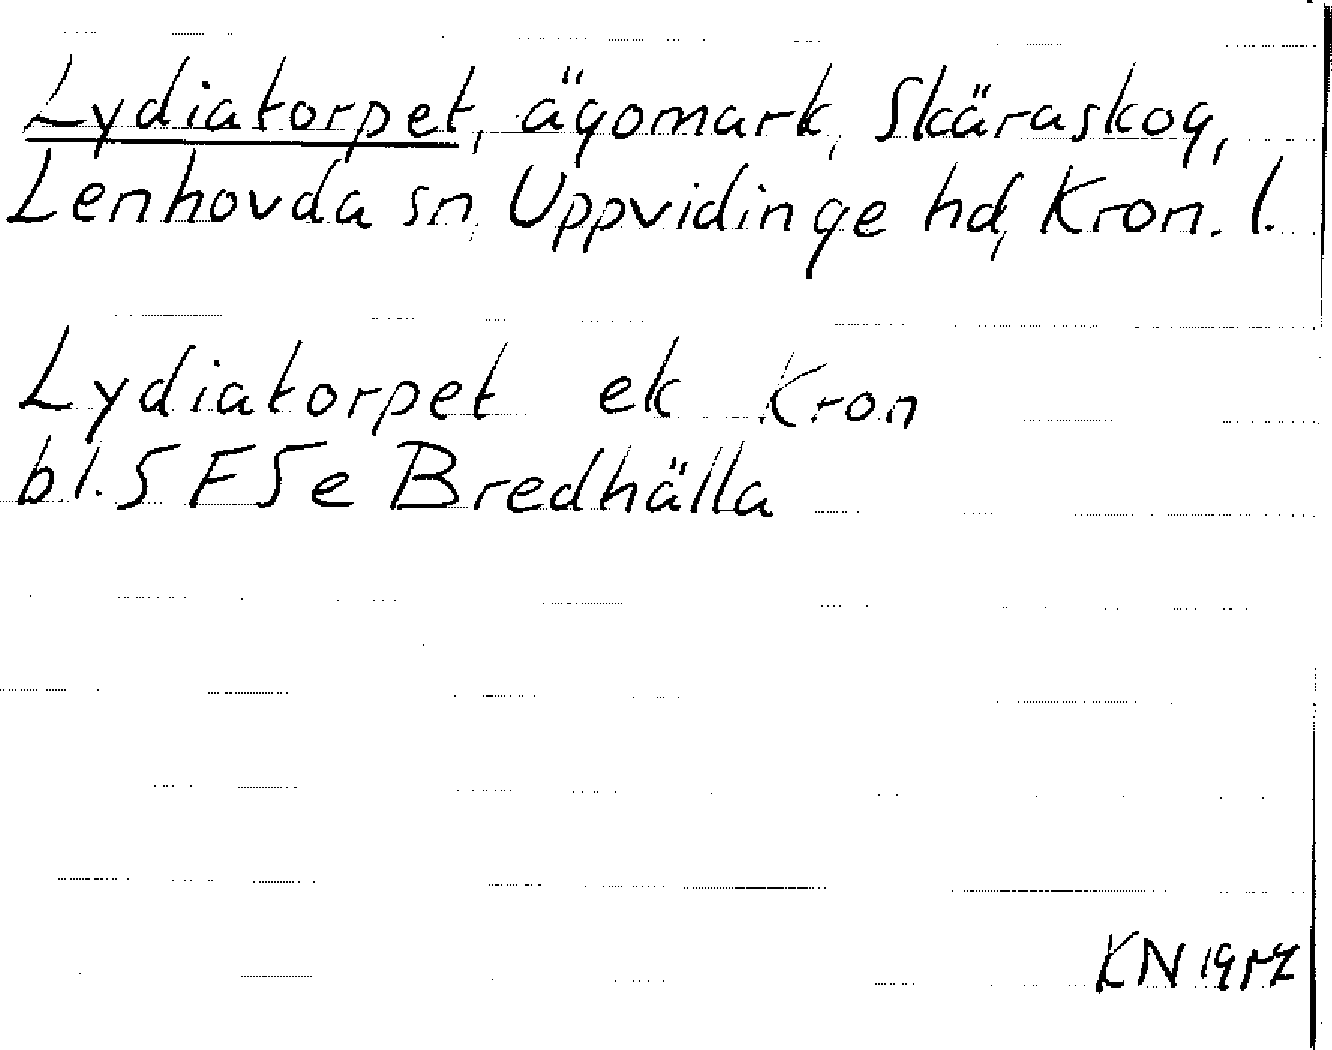 Lydiatorpet, ägomark, Skäraskog,
Lenhovda sn, Uppvidinge hd, Kron. l.
Lydiatorpet ek Kron
bl. 5 F 5e Bredhälla
KN 1957